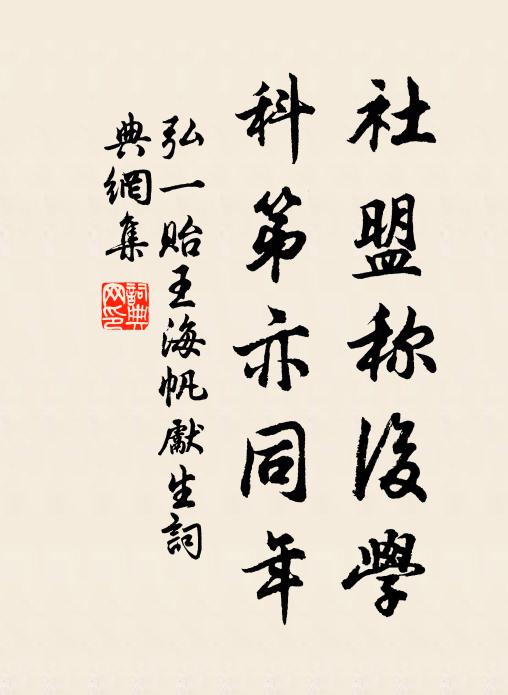 社盟称後學
科第亦同年
弘一貽王海帆獻生詞
典網集
詞典
网印